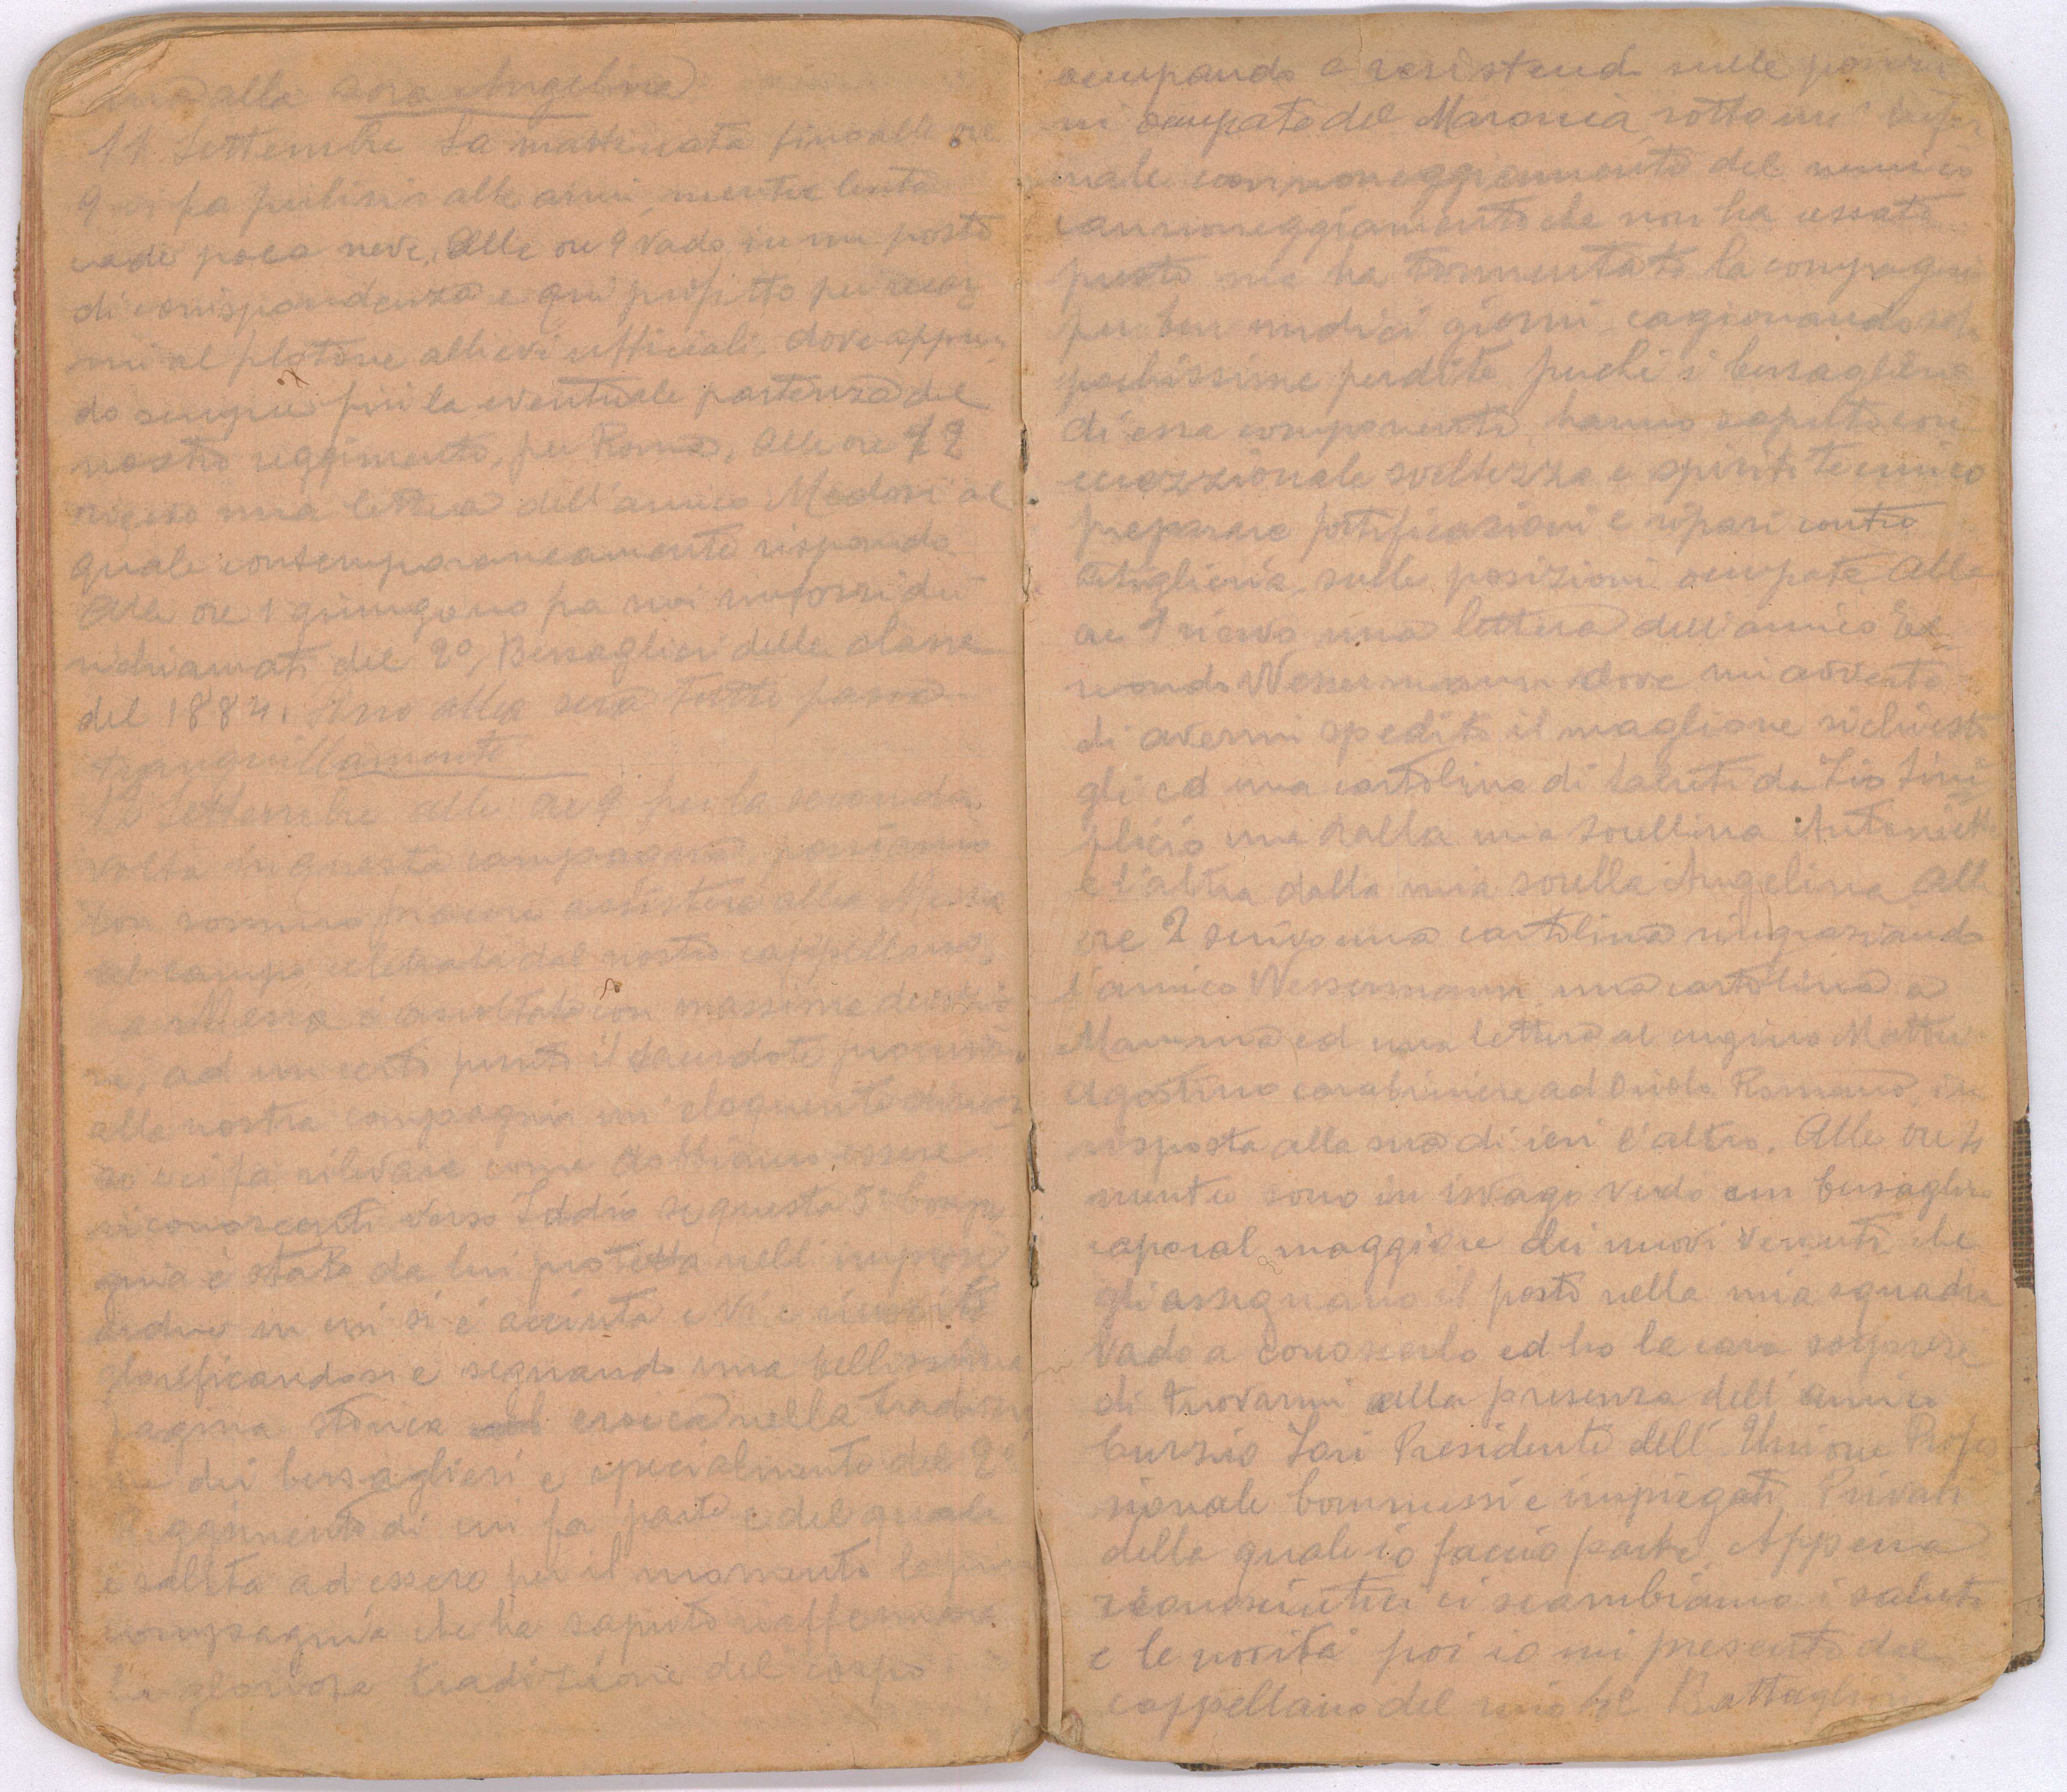 alla Sora Angelina
11 Settembre La mattinata fino alle ore
9 si fa pulizia alle armi, mentre lenta
cade poca neve, Alle ore 9 vado in un posto
di corrispondenza e qui profitto per recar
mi al plotone allievi ufficiali, dove appren
do sempre più la eventuale partenza del
nostro reggimento, per Roma, Alle ore 12
ricevo una lettera dell'amico Madosi al
quale contemporaneamente rispondo
Alle ore 1 giungono fra noi rinforzi dei
richiamati del 2º, Bersaglieri della classe
del 1884. Sino alla sera tutto passa
tranquillamente
12 Settembre alle ore 9 per la seconda
volta in questa campagna possiamo
con sommo piacere assistere alla Messa
al campo celebrata dal nostro cappellano,
a Messa è ascoltata con massima devozio
ne, ad un certo punto il sacerdote pronunzia
alla nostra compagnia un'eloquente discor
so ci fa rilevare come dobbiamo essere
riconoscenti verso Iddio se questa 5ª Compa
gnia è stata da lui protetta nell'imprese
ardue in cui si è accinta e vi è riuscita
glorificandosi e segnando una bellissima
pagina storica ed eroica nella tradizio
ne dei bersaglieri e specialmente del 2º
Reggimento di cui fa parte e del quale
è salita ad essere per il momento la prima
compagnia che ha saputo riaffermare
la gloriosa tradizione del corpo
occupando e resistendo sulle posizio
ni occupate del Maronia sotto un' infer
nale cannoneggiamento del nemico
cannoneggiamento che non ha cessato
presto ma ha tormentato la compagnia
per ben undici giorni, cagionando solo
pochissime perdite, perchè i bersaglieri
di essa componenti, hanno saputo con
eccezzionale sveltezza e spirito tecnico
preparare fortificazioni e ripari contro
artiglieria, sulle posizioni occupate Alle
ore 1 ricevo una lettera dell'amico
Wessermann dove mi avverte
di avermi spedito il maglione richiesto
gli ed una cartolina di saluti da Zio Sim
plicio una dalla mia sorellina Antonietta
e l'altra dalla mia sorella Angelina Alle
ore 2 scrivo una cartolina ringraziando
l'amico Wessermann, una cartolina a
Mamma ed una lettera al cugino Mattei
Agostino carabiniere ad Oriolo Romano, in
risposta alla sua di ieri l'altro. Alle ore 4
mentre sono in isvago vedo un bersagliere
caporal maggiore dei nuovi venuti che
gli assegnano il posto nella mia squadra
Vado a conoscerlo ed ho la cara sorprese
di trovarmi alla presenza dell'amico
Curzio Jori Presidente dell'Unione Profes
sionale Commessi e impiegati Privati
della quale io faccio parte, Appena
riconosciutici ci scambiamo i saluti
e le novità poi io mi presento dal
cappellano del mio Battaglione